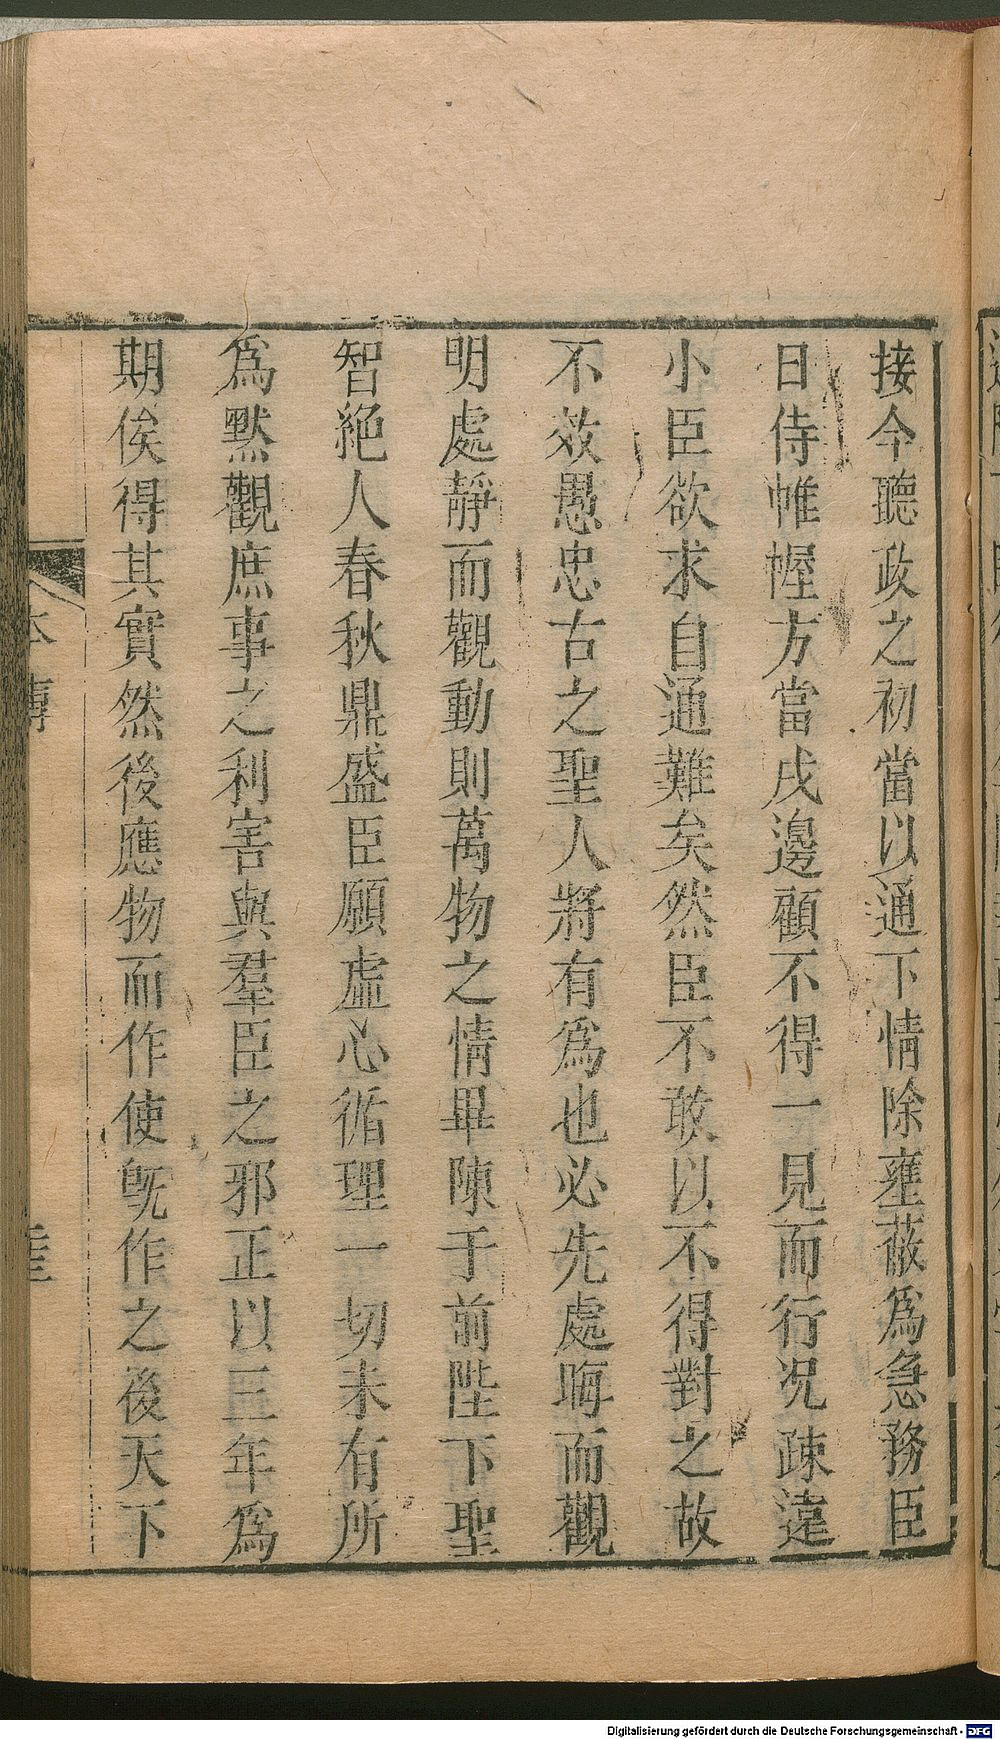 接今聽政之初當以通下情除壅蔽爲急務臣
日侍帷幄方當戍邊顧不得一見而行况疎遠
小臣欲求自通難矣然臣不敢以不得對之故
不效愚忠古之聖人將有爲也必先處晦而觀
明處靜而觀動則萬物之情畢陳于前陛下聖
智絶人春秋鼎盛臣願虛心循理一切未有所
爲默觀庶事之利害與羣臣之邪正以三年爲
期俟得其實然後應物而作使旣作之後天下
本傳
Digitalisierung gefördert durch die Deutsche Forschungsgemeinschaft - DFG